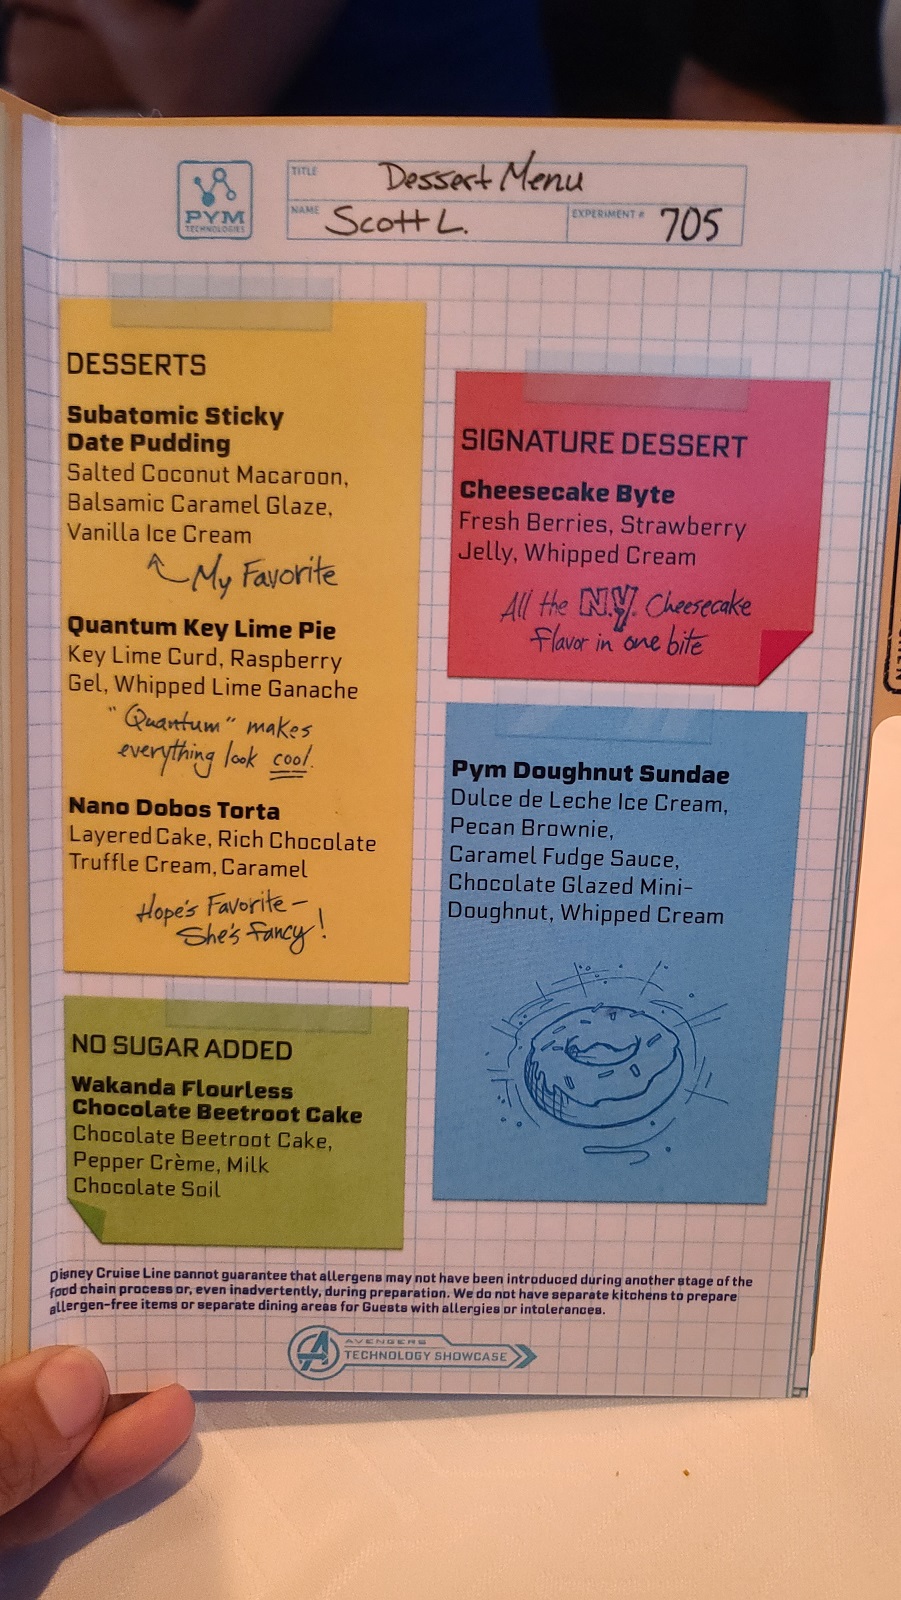 PYM
TECHNOLOGIES
TITLE Dessert Menu
NAME Scott L.
EXPERIMENT # 705
DESSERTS
Subatomic Sticky
Date Pudding
Salted Coconut Macaroon,
Balsamic Caramel Glaze,
Vanilla Ice Cream
My Favorite
Quantum Key Lime Pie
Key Lime Curd, Raspberry
Gel, Whipped Lime Ganache
"Quantum" makes
everything look cool.
Nano Dobos Torta
Layered Cake, Rich Chocolate
Truffle Cream, Caramel
Hope's Favorite –
She's fancy!
NO SUGAR ADDED
Wakanda Flourless
Chocolate Beetroot Cake
Chocolate Beetroot Cake,
Pepper Crème, Milk
Chocolate Soil
SIGNATURE DESSERT
Cheesecake Byte
Fresh Berries, Strawberry
Jelly, Whipped Cream
All the N.Y. Cheesecake
flavor in one bite
Pym Doughnut Sundae
Dulce de Leche Ice Cream,
Pecan Brownie,
Caramel Fudge Sauce,
Chocolate Glazed Mini-
Doughnut, Whipped Cream
Disney Cruise Line cannot guarantee that allergens may not have been introduced during another stage of the
food chain process or, even inadvertently, during preparation. We do not have separate kitchens to prepare
allergen-free items or separate dining areas for Guests with allergies or intolerances.
AVENGERS
TECHNOLOGY SHOWCASE